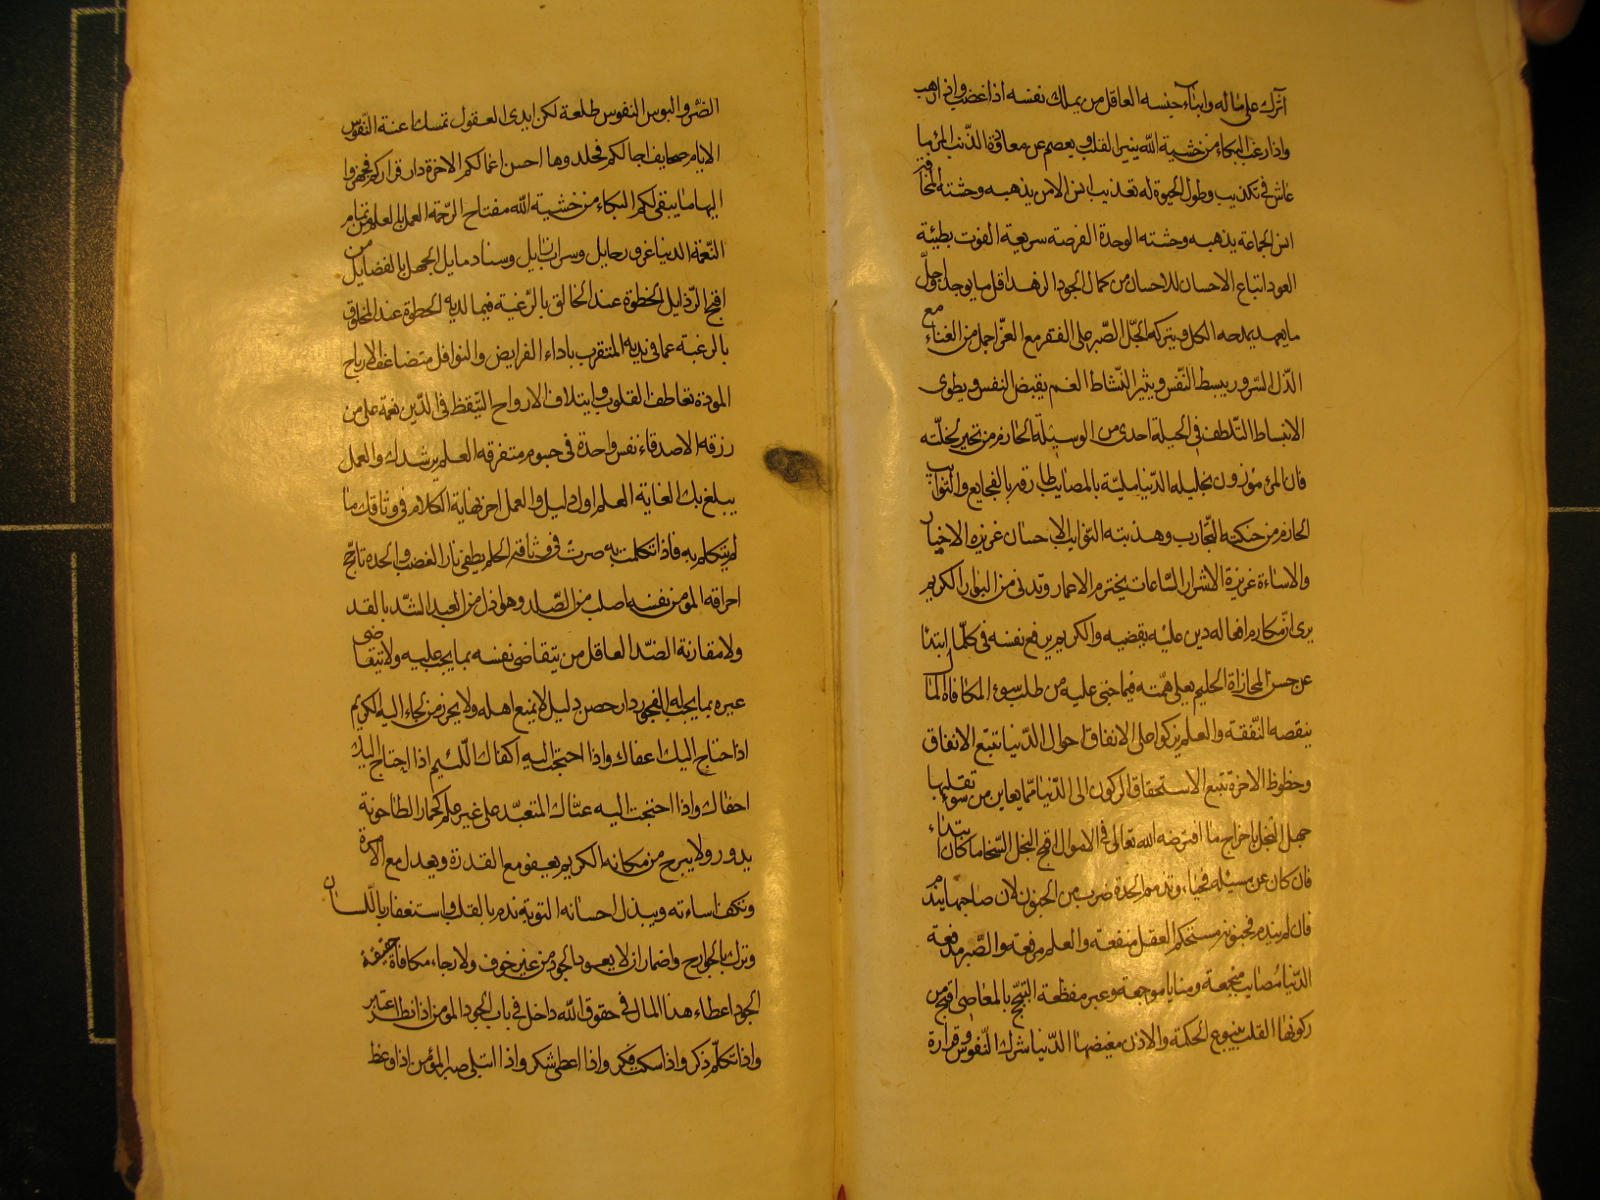 آثرك على ماله وابناء جنسه العاقل من يملك نفسه اذا غضب واذا رهب
واذا رغب البكاء من خشية الله ينير القلب ويعصم عن معاودة الذنب المرء ما
عاش في تكذيب وطول الحيوة له تعذيب انس الامن يذهبه وحشته المخافة
انس الجماعة يذهبه وحشته الوحدة الفرصة سريعة الفوت بطيئة
العود اتباع الاحسان للاحسان من كمال الجود الزهد اقل ما يوجد واجلّ
ما يعهد يمدحه الكل ويتركه الجلّ الصّبر على الفقر مع العزّ اجمل من الغناء مع
الذّل السّرور يبسط النّفس ويثير النّشاط الغم يقبض النفس ويطوى
الانبساط التّلطف في الحيلة احدى من الوسيلة الحازم من تخير لخلّته
فان المرء موزون بخليله الدّنيا مليّة بالمصايب طارقة بالفجايع والنّوايب
الحازم من حنكته التّجارب وهذبته النّوايب الاحسان غريزه الاخيار
والاساءة غريزة الاشرار السّاعات يخترم الاعمار وتدنى من البوار الكريم
يرى انّ مكارم افعاله دين عليه يقضيه والكريم يرفع نفسه في كلّما ابتدا
عن حسن المجازاة الحليم يعلى همّته فيما جنى عليه من طلب سوء المكافاة المال
ينقصه النّفقه والعلم يزكوا على الانفاق احوال الدّنيا تتبع الاتفاق
وحظوظ الاخرة تتبع الاستحقاق الركون الى الدّنيا مع ما يعاين من سوء تقلبها
جهل البخل باخراج ما افترضه الله تعالى في الاموال اقبح البخل السّخاء ما كان ابتداء
فان كان عن مسئلة فحياء وتذمم الحدة ضرب من الجنون لان صاحبها يندم
فان لم يندم فجنونه مستحكم العقل منفعة والعلم مرفعة والصّبر مدفعة
الدّنيا مصايب مفجعة ومنايا موجعة وعبر مفظعة التبجّح بالمعاصى اقبح من
ركوبها القلب ينبوع الحكمة والاذن مغيضها الدّنيا شرك النّفوس وقرارة
الضّر والبوس النفوس طلعة لكن ايدى العقول تمسك اعنة النفوس
الايام صحايف اجالكم فخلدوها احسن اعمالكم الاخرة دار قراركم فجهزوا
اليها ما يبقى لكم البكاء من خشية الله مفتاح الرّحمة العمل بالعلم من تمام
النّعمة الدنيا غرور حايل وسراب زايل وسناد مايل الجهل بالفضايل من
اقبح الرّذايل الحظوة عند الخالق بالرّغبة فيما لديه الحظوة عند المخلوق
بالرغبة عما في يديه المتقرب باداء الفرايض والنوافل متضاعف الارباح
المودة تعاطف القلوب وايتلاف الارواح التّيقظ في الدّين نعمة على من
رزقه الاصدقاء نفس واحدة في جسوم متفرقه العلم يرشدك والعمل
يبلغ بك الغاية العلم اول دليل والعمل اخر نهاية الكلام في وثاقك ما
لم يتكلم به فاذا تكلمت به صرت في وثاقه الحلم يطفى نار الغضب والحده تاجّج
احراقه المومن نفسه اصلب من الصّلد وهو اذل من العبد الشّد بالقد
ولا مقارنة الضدّ العاقل من يتقاضى نفسه بما يجب عليه ولا يتقاضى
غيره بما يجب له الفجور دار حصن ذليل لا يمنع اهله ولا يحرز من لجاء اليه الكريم
اذا احتاج اليك اعفاك واذا احتجت اليه اكفاك اللّئيم اذا احتاج اليك
احفاك واذا احتجت اليه عنّاك المتعبّد على غير علم كحمار الطاحونة
يدور ولا يبرح من مكانه الكريم يعفو مع القدرة ويعدل مع الامرة
ويكف اساءته ويبذل احسانه التوبة ندم بالقلب واستغفار باللّسان
وترك بالجوارح واضمار ان لا يعود الجود من غير خوف ولا رجاء مكافاة حقيقة
الجود اعطاء هذا المال في حقوق الله داخل في باب الجود المومن اذا نظر اعتبر
واذا تكلّم ذكر واذا سكت فكر واذا اعطى شكر واذا ابتلى صبر المؤمن اذا وعظ